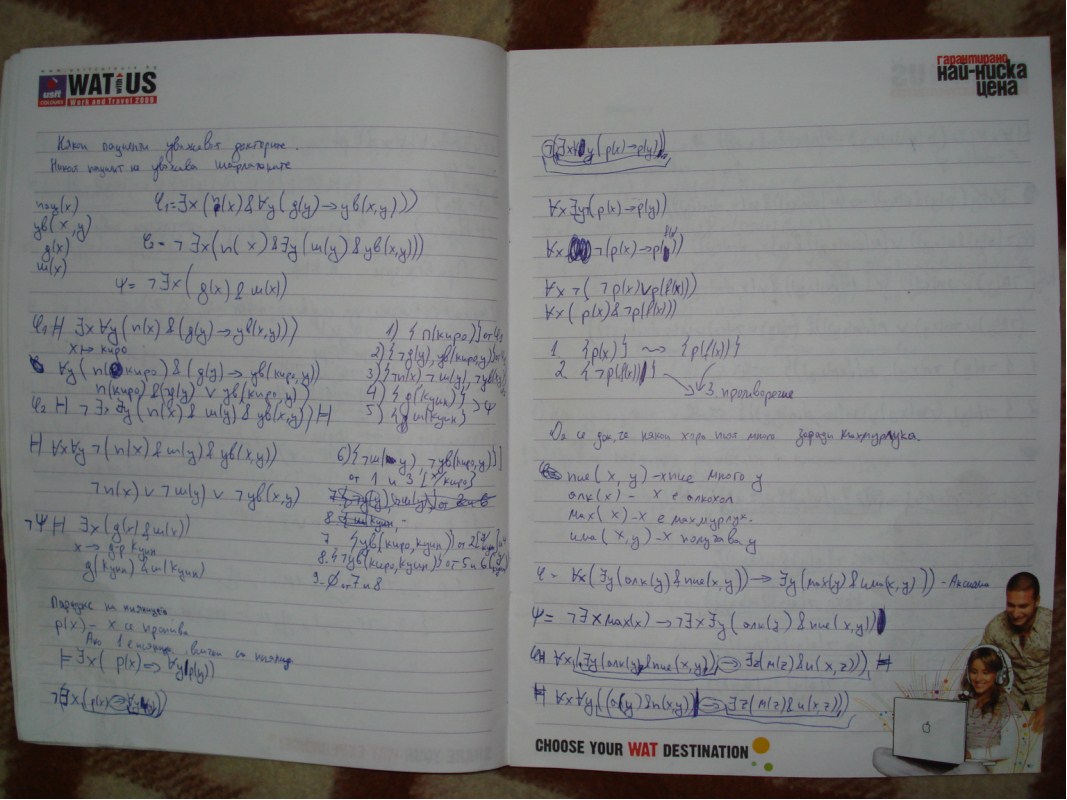 www.usitcolours.bg
usit
COLOURS
WAT US
Work and Travel 2009
Някои пациенти уважават докторите.
Никой пациент не уважава шарлатаните
пац(x)
ув(x,y)
д(x)
ш(x)
φ₁=∃x(п(x)&∀y(д(y)→ув(x,y)))
φ₂=¬∃x(п(x)&∃y(ш(y)&ув(x,y)))
ψ=¬∃x(д(x)&ш(x))
φ₁ H ∃x∀y(п(x)&(д(y)→ув(x,y)))
x↦киро
∀y(п(киро)&(д(y)→ув(киро,y))
п(киро)&(¬д(y)∨ув(киро,y))
φ₂ H ¬∃x∃y(п(x)&ш(y)&ув(x,y)) H
H ∀x∀y¬(п(x)&ш(y)&ув(x,y))
¬п(x)∨¬ш(y)∨¬ув(x,y)
¬ψ H ∃x(д(x)&ш(x))
x→д-р Куин
д(Куин)&ш(Куин)
1) {п(киро)} от φ₁
2) {¬д(y), ув(киро,y)}
3) {¬п(x) ¬ш(y), ¬ув(x,y)}
4) {д(куин)}
5) {ш(куин)}
6) {¬ш(y), ¬ув(киро,y)}
от 1 и 3 [x/киро]
7. {ув(киро,куин)} от 2
8. {¬ув(киро,куин)} от 5 и 6
9. ∅ от 7 и 8
Парадокс на пияницата
p(x) - x се пропива
Ако 1 е пияница, всички са пияници
⊨∃x(p(x)⇒∀y p(y))
¬(∃x(p(x)→∀y p(y)))
гарантирано
най-ниска
цена
¬(∃x∀y(p(x)→p(y)))
∀x∃y¬(p(x)→p(y))
∀x ¬(p(x)→p(f(x)))
∀x¬(¬p(x)∨p(f(x)))
∀x(p(x)&¬p(f(x)))
1 {p(x)} ⇝ {p(f(x))}
2 {¬p(f(x))}
3. противоречие
Да се док, че някои хора пият много заради махмурлука.
пие(x,y) - x пие много y
алк(x) - x е алкохол
мах(x) - x е махмурлук.
има(x,y) - x получава y
φ = ∀x(∃y(алк(y)&пие(x,y))→∃y(мах(y)&има(x,y))) - Аксиома
ψ= ¬∃x мах(x)→¬∃x∃y(алк(y)&пие(x,y))
φ H ∀x(∃y(алк(y)&пие(x,y))→∃z(м(z)&и(x,z))) H
H ∀x∀y((а(y)&п(x,y))→∃z(м(z)&и(x,z)))
CHOOSE YOUR WAT DESTINATION